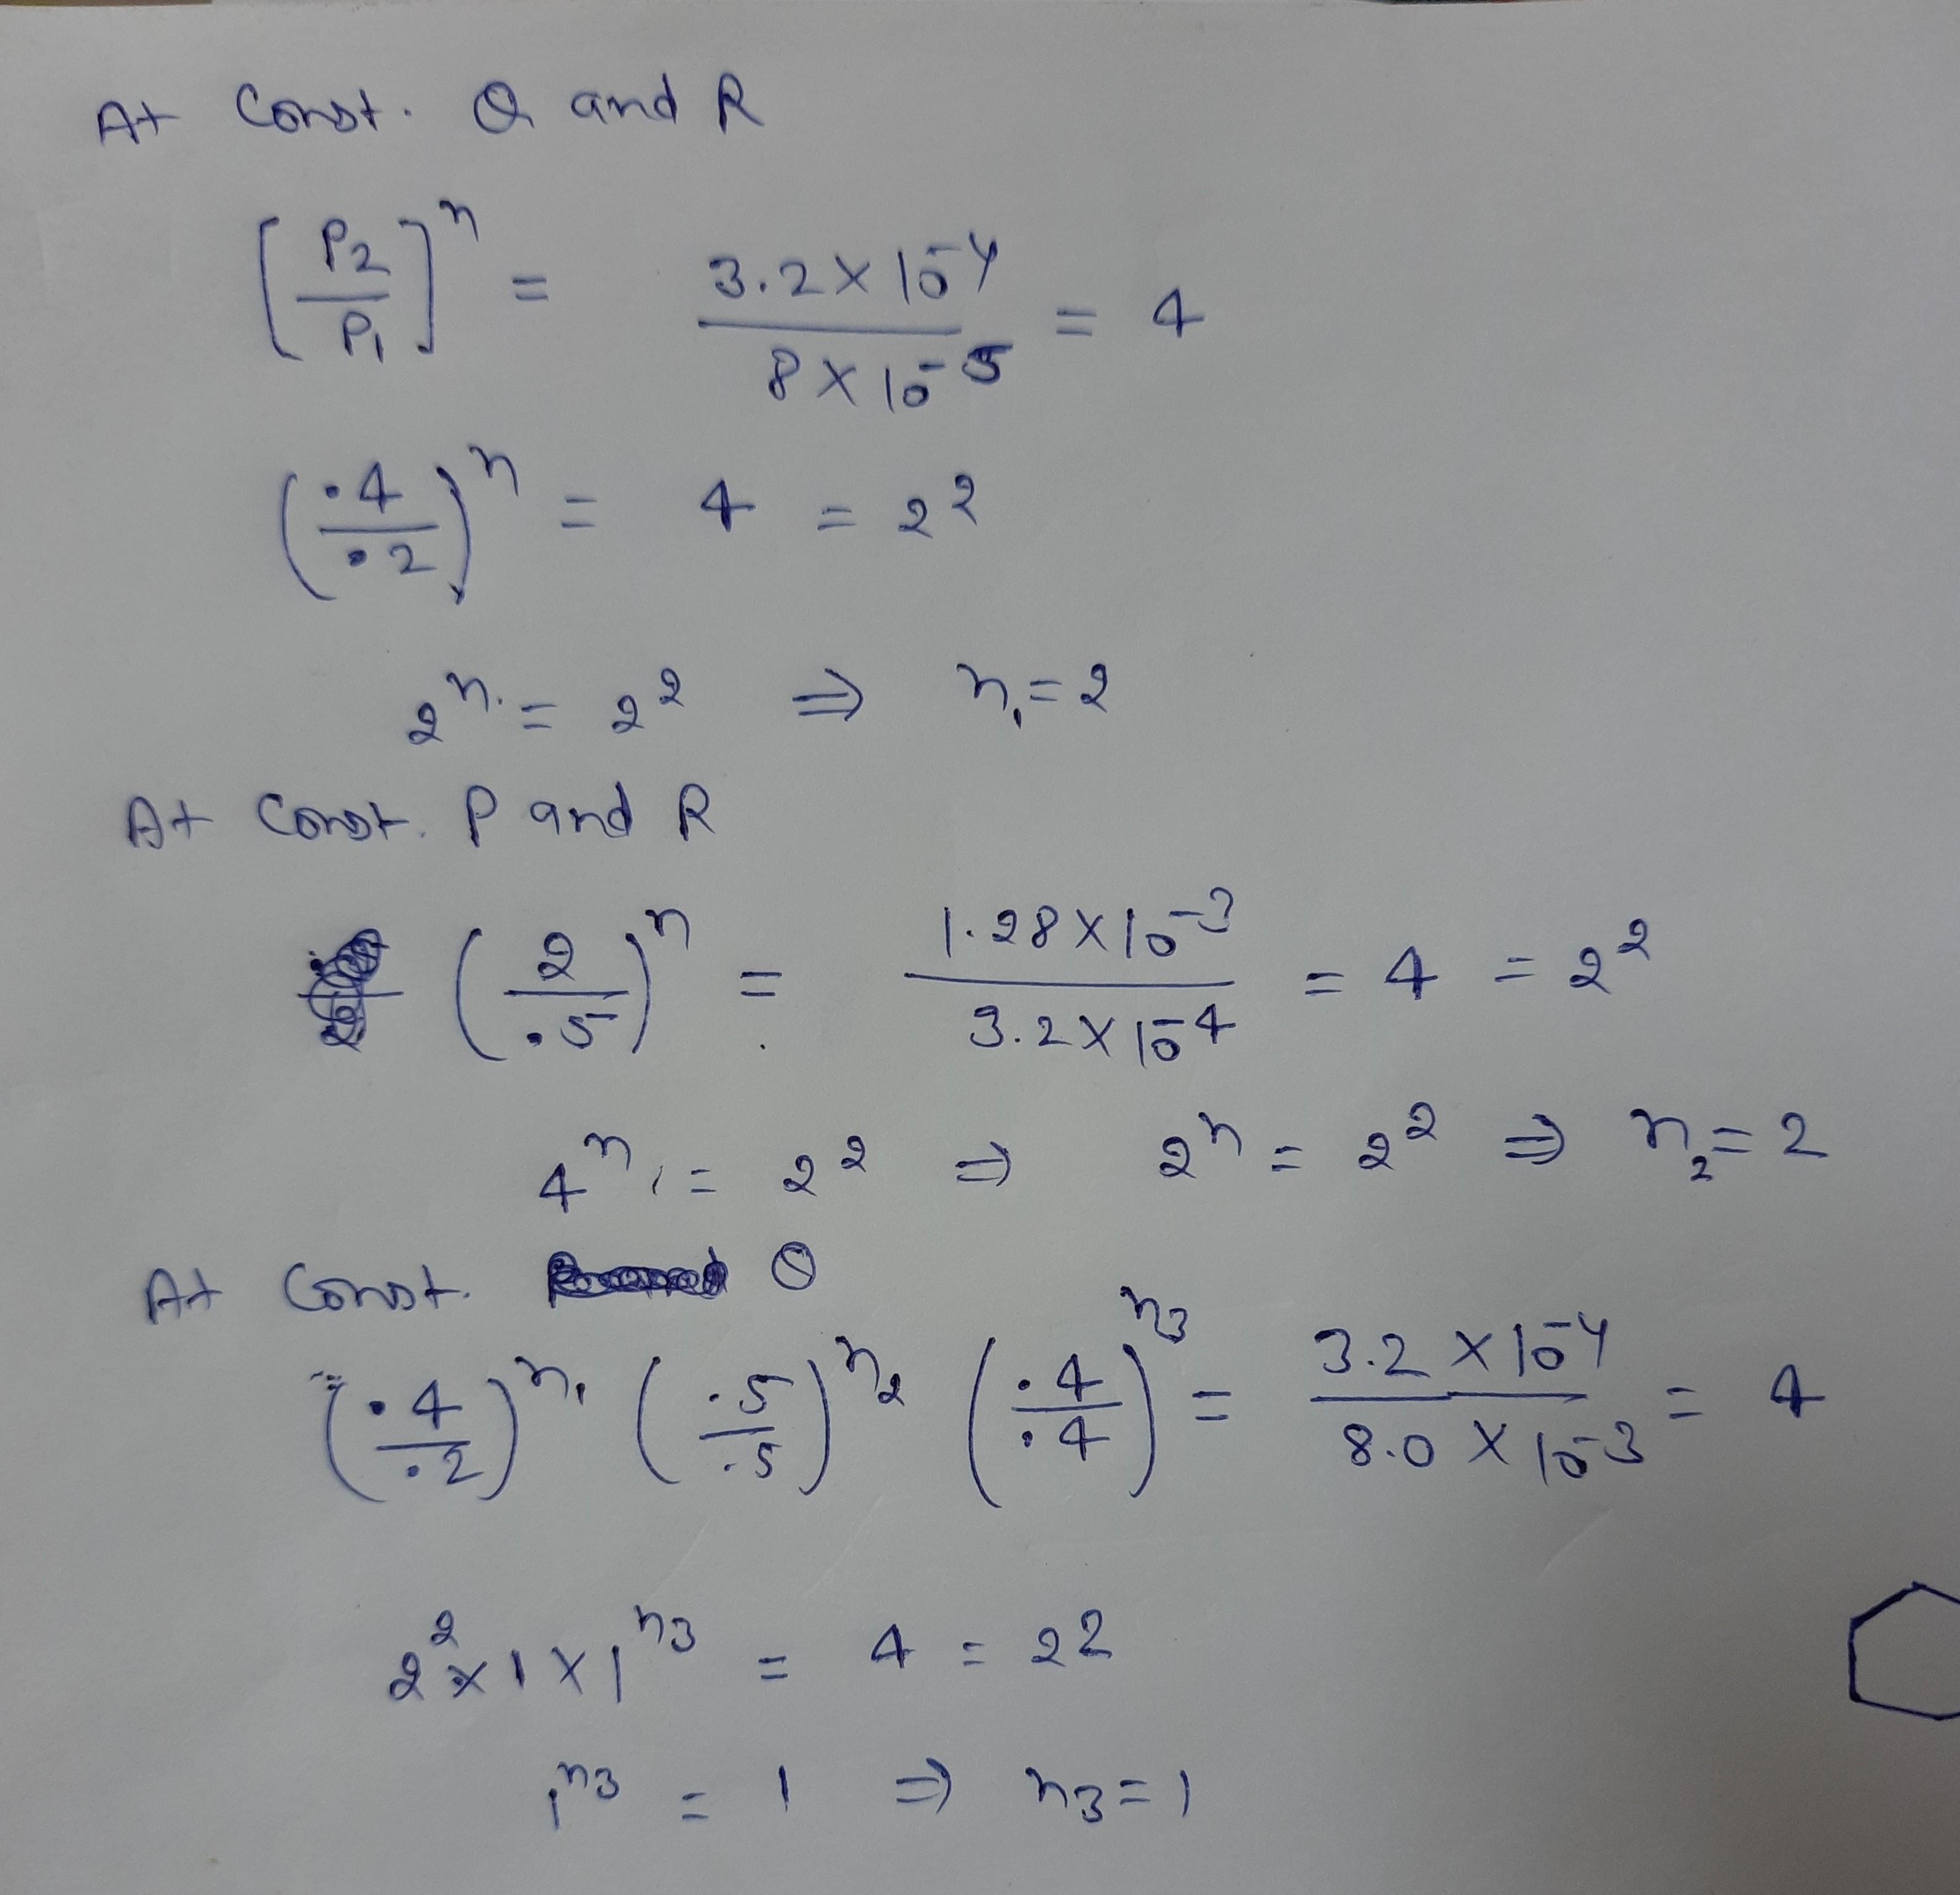 At Const. Q and R
[P2/P1]^n = 3.2 × 10^-4 / 8 × 10^-5 = 4
(.4/.2)^n = 4 = 2^2
2^n. = 2^2 ⇒ n1 = 2
At Const. P and R
(2/.5)^n = 1.28 × 10^-3 / 3.2 × 10^-4 = 4 = 2^2
4^n = 2^2 ⇒ 2^n = 2^2 ⇒ n2 = 2
At Const. Q
(.4/.2)^n1 (.5/.5)^n2 (.4/.4)^n3 = 3.2 × 10^-4 / 8.0 × 10^-3 = 4
2^2 × 1 × 1^n3 = 4 = 2^2
1^n3 = 1 ⇒ n3 = 1